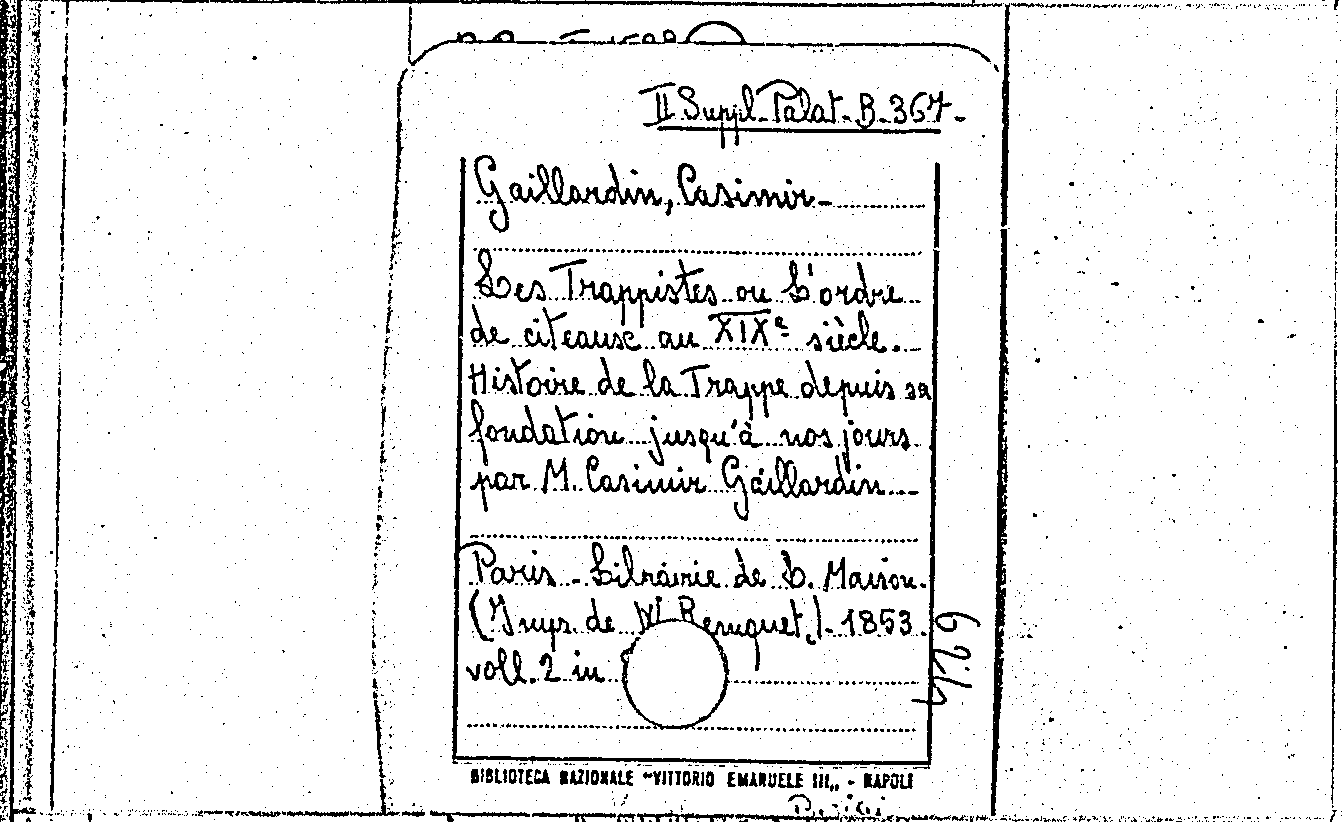 II Suppl. Palat. B. 367.
Gaillardin, Casimir.
Les Trappistes ou L'ordre
de citeaux au XIXe siècle.
Histoire de la Trappe depuis sa
fondation jusqu'à nos jours
par M. Casimir Gaillardin.
Paris - Librairie de L. Maison.
(Impr. de 1853.
voll. 2 in
BIBLIOTECA NAZIONALE "VITTORIO EMANUELE III„ - NAPOLI